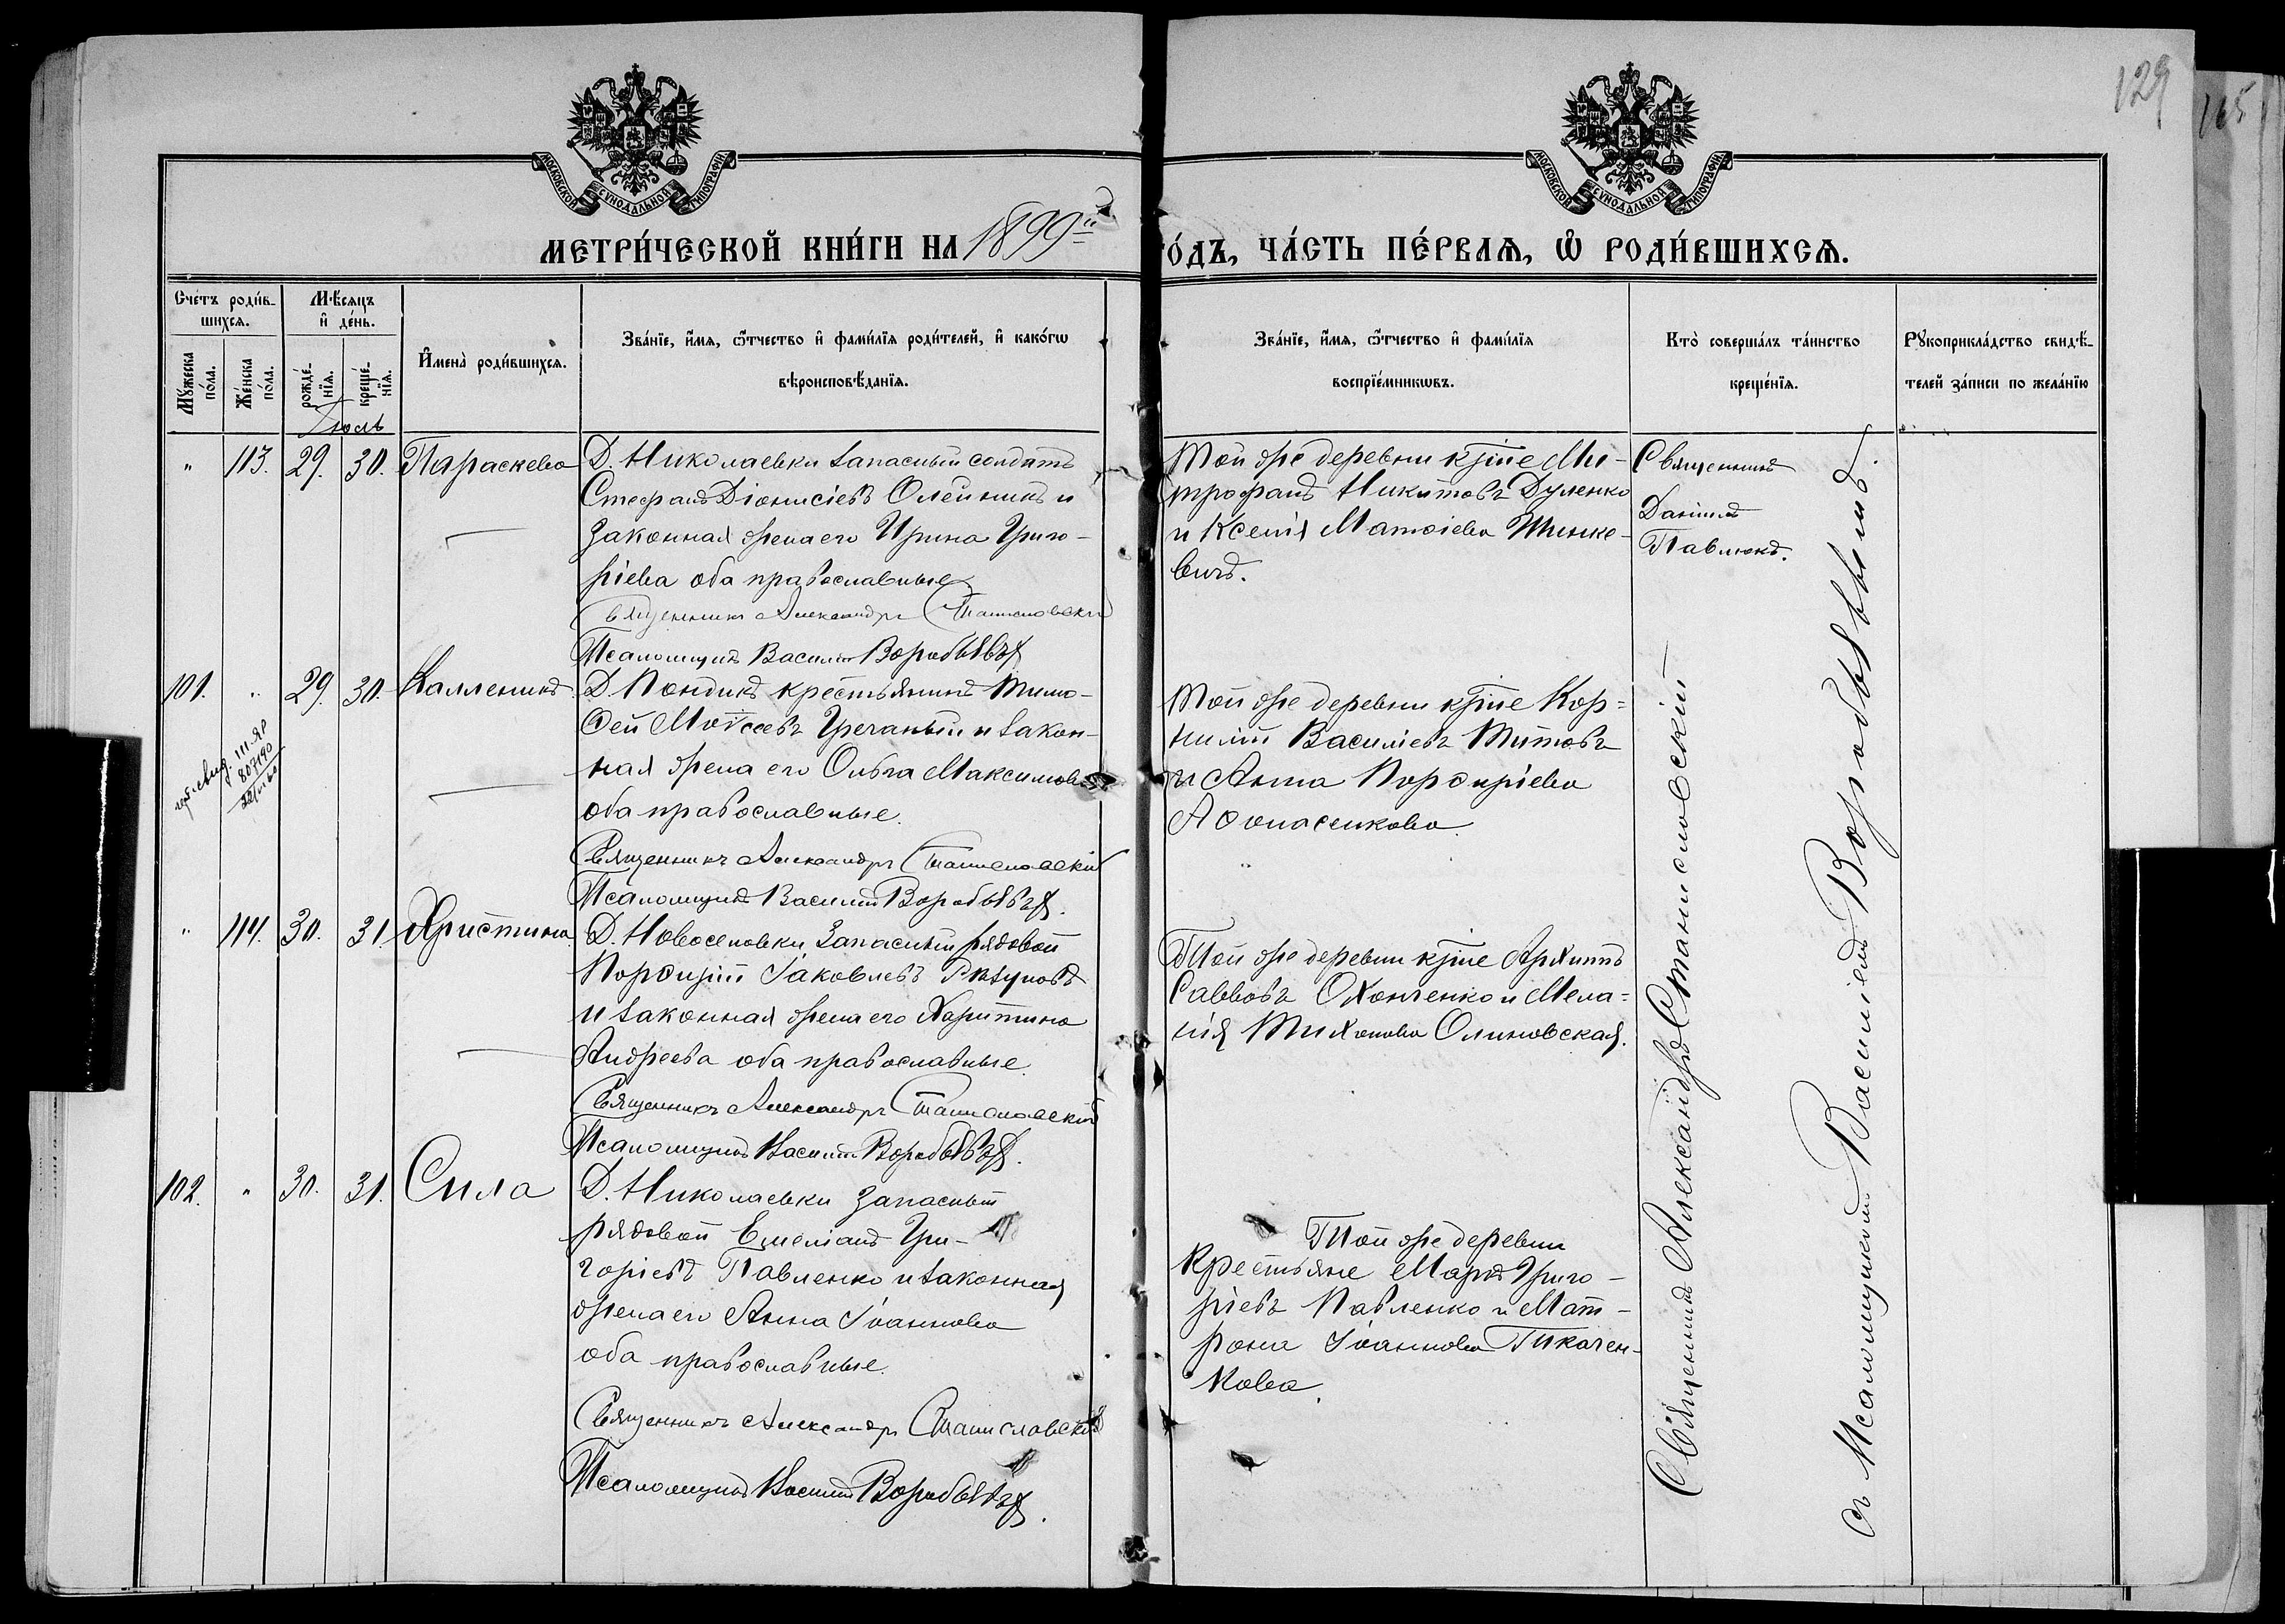 129
165
МОСКОВСКОЙ СѴНОДАЛЬНОЙ ТИПОГРАФІИ
МОСКОВСКОЙ СѴНОДАЛЬНОЙ ТИПОГРАФІИ
МЕТРИ́ЧЕСКОЙ КНИ́ГИ НА 1899й
ГО́ДЪ, ЧА́СТЬ ПЕ́РВАѦ, Ѡ РОДИ́ВШИХСѦ.
Сче́тъ роди́в-
шихсѧ.
Мꙋ́жеска
по́ла.
Же́нска
по́ла.
Мѣ́сѧцъ
и҆ де́нь.
рожде́-
нїѧ.
креще́-
нїѧ.
И҆мена̀ роди́вшихсѧ.
Зва́нїе, и҆́мѧ, ѻ҆́тчество и҆ фами́лїѧ роди́телей, и҆ како́гѡ
вѣроисповѣ́данїѧ.
Зва́нїе, и҆́мѧ, ѻ҆́тчество и҆ фами́лїѧ
воспрїе́мникѡвъ.
Кто̀ соверша́лъ та́инство
креще́нїѧ.
Рꙋкоприкла́дство свидѣ́-
телей за́писи по жела́нїю
Іюль
" 113. 29. 30. Параскева
Д. Николаевки запасный солдатъ
Стефанъ Діонисіевъ Олейникъ и
законная жена его Ирина Григо-
ріева оба православные
Священникъ Александръ Станиславскій
Псаломщикъ Василій Воробьёвъ
Той же деревни кр̃не Ми-
трофанъ Никитовъ Дуленко
и Ксенія Матѳіева Шинке-
вичъ.
Священникъ
Даніилъ
Павлюкъ.
101. " 29. 30. Каллиникъ
Д. Пондикъ крестьянинъ Тимо-
ѳей Моѵсеевъ Гречаный и закон-
ная жена его Ольга Максимова
оба православные.
Священникъ Александръ Станиславскій
Псаломщикъ Василій Воробьёвъ.
III-ЯР
807190
Той же деревни кр̃не Кор-
нилій Василіевъ Титовъ
и Анна Порфиріева
Аѳонасенкова.
" 114. 30. 31. Христина
Д. Новоселовки Запасный рядовой
Порфирій Іаковлевъ Рѣзуновъ
и законная жена его Харитина
Андреева оба православные.
Священникъ Александръ Станиславскій
Псаломщикъ Василій Воробьёвъ.
Той же деревни кр̃не Архипъ
Саввовъ Охонченко и Мела-
нія Тихонова Олиновская.
102. " 30. 31. Сила
Д. Николаевки Запасный
рядовой Емеліанъ Гри-
горіевъ Павленко и законная
жена его Анна Іоаннова
оба православные.
Священникъ Александръ Станиславскій
Псаломщикъ Василій Воробьёвъ.
Той же деревни
Крестьяне Маркъ Григо-
ріевъ Павленко и Мат-
рона Іоаннова Ткачен-
кова.
Священникъ Александръ Станиславскій
съ Псаломщикомъ Василіемъ Воробьёвымъ.